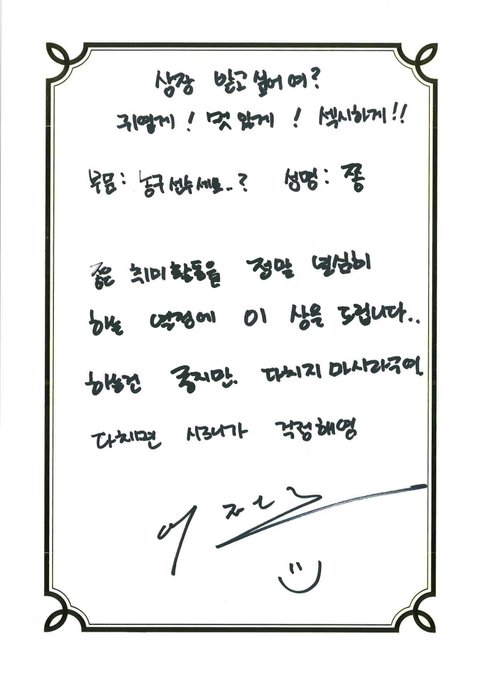 상장 받고 싶어여?
귀엽게! 멋있게! 섹시하게!!
부문: 농구선수세요..? 성명: 쫑
좋은 취미활동을 정말 열심히
하는 열정에 이 상을 드립니다..
하는건 좋지만. 다치지 마시라구여.
다치면 시크니가 걱정해영